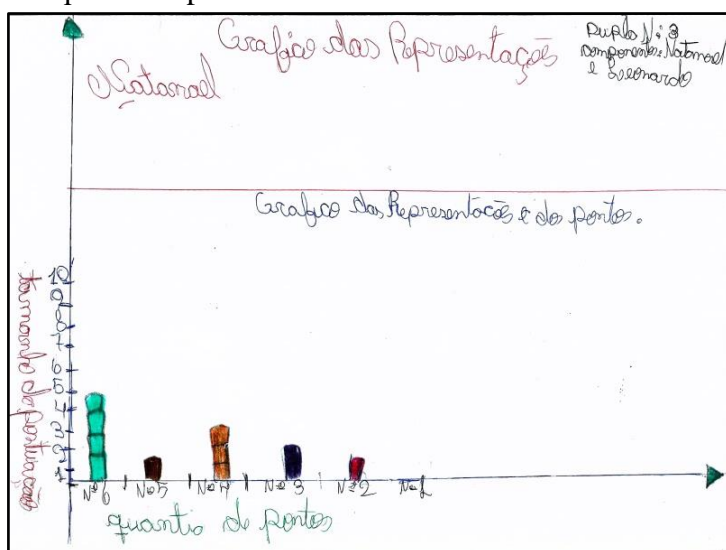 Grafico das Representações
Dupla Nº 3
componentes Natanael
e Leonardo
Natanael
Grafico das Representacões e dos pontos.
tamanho de pontuação
10
9
8
7
6
5
4
3
2
1
Nº 6
Nº 5
Nº 4
Nº 3
Nº 2
Nº 1
quantis de pontos